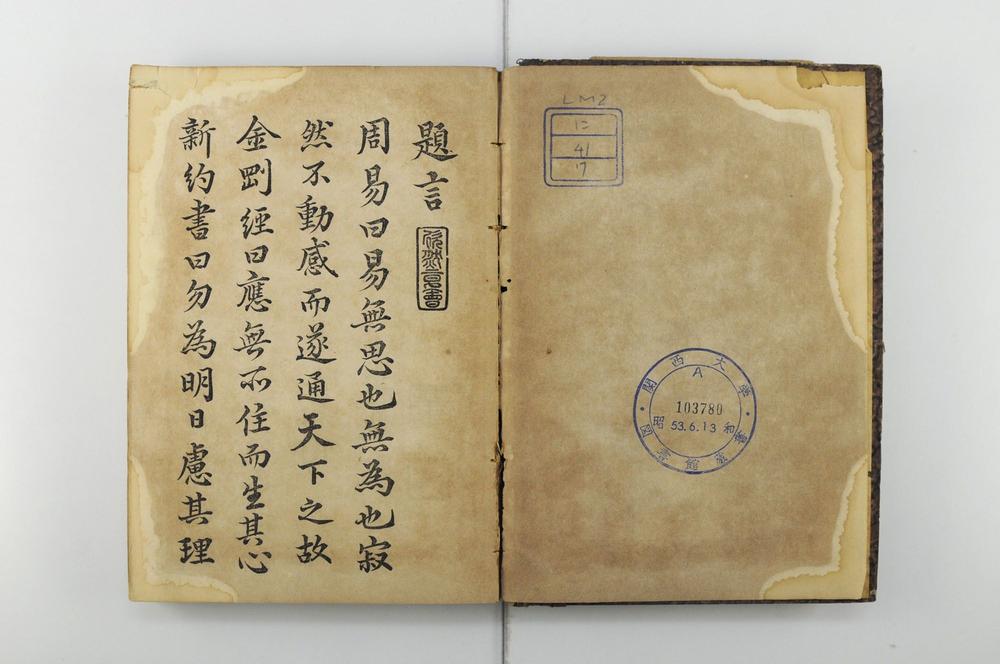 題言
周易曰易無思也無為也寂
然不動感而遂通天下之故
金剛經曰應無所住而生其心
新約書曰勿為明日慮其理
LM2
に
41
17
關西大學
A
103780
昭和
53.6.13
圖書館藏書